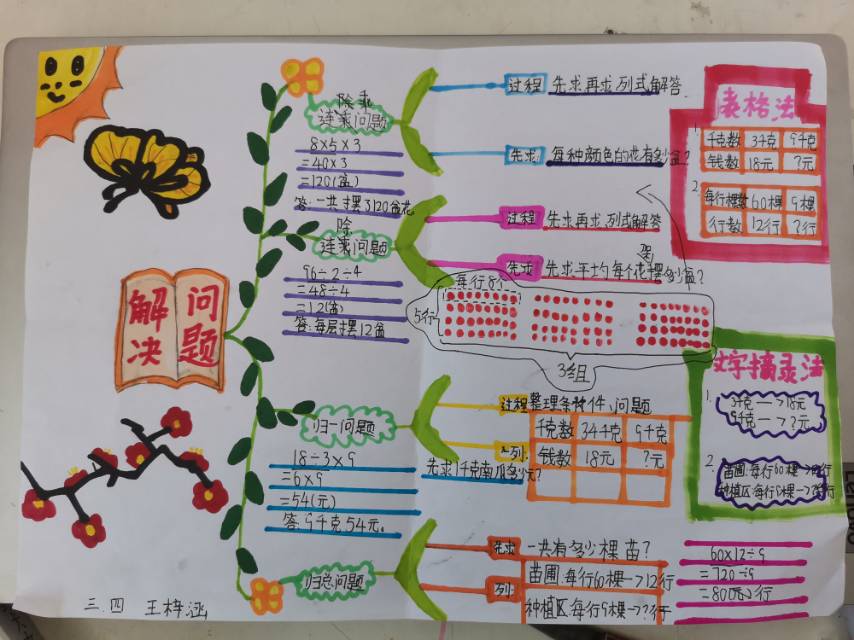 解决
问题
除乘
连乘问题
8×5×3
=40×3
=120(盆)
答:一共摆了120盆花
过程
先求再求,列式解答
先求:
每种颜色的花有多少盆?
除
连乘问题
96÷2÷4
=48÷4
=12(盆)
答:每层摆12盆
过程
先求再求,列式解答
先求
先求平均每个花架摆多少盆?
每行8个
5行
3组
归一问题
18÷3×9
=6×9
=54(元)
答:9千克54元。
过程
整理条件、问题
列:
千克数 3千克 9千克
钱数 18元 ?元
归总问题
先求
一共有多少棵苗?
列
苗圃:每行60棵—>12行
种植区:每行9棵—>?行
60×12÷9
=720÷9
=80(行)
表格法
1.
千克数 3千克 9千克
钱数 18元 ?元
2.
每行棵数 60棵 9棵
行数 12行 ?行
文字摘录法
1.
3千克—>18元
9千克—>?元
2.
苗圃:每行60棵
种植区:每行
三.四 王梓涵